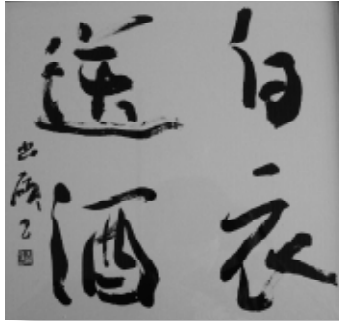 白衣
送酒